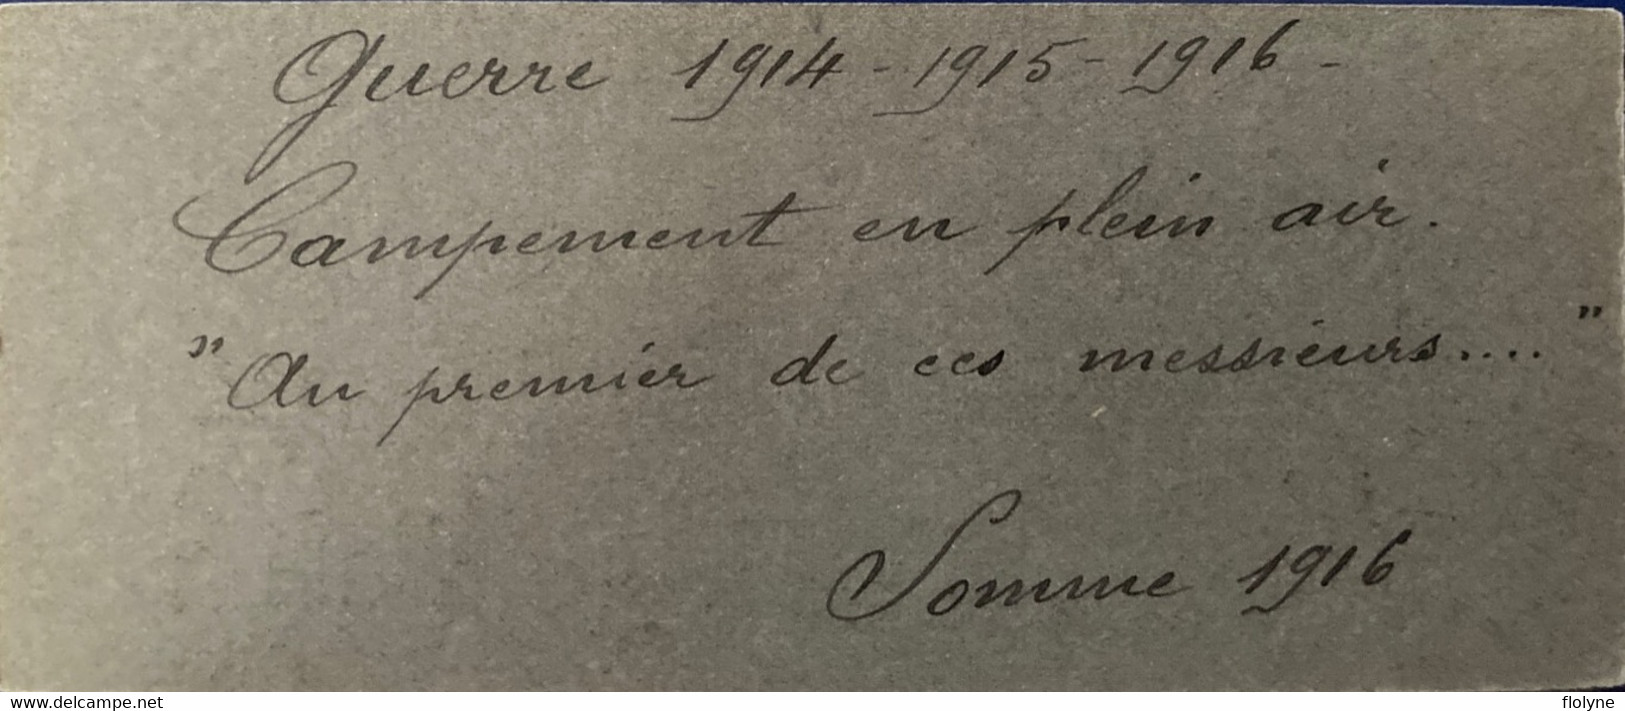 Guerre 1914 - 1915 - 1916 -
Campement en plein air.
"Au premier de ces messieurs...."
Somme 1916
www.delcampe.net
flolyne